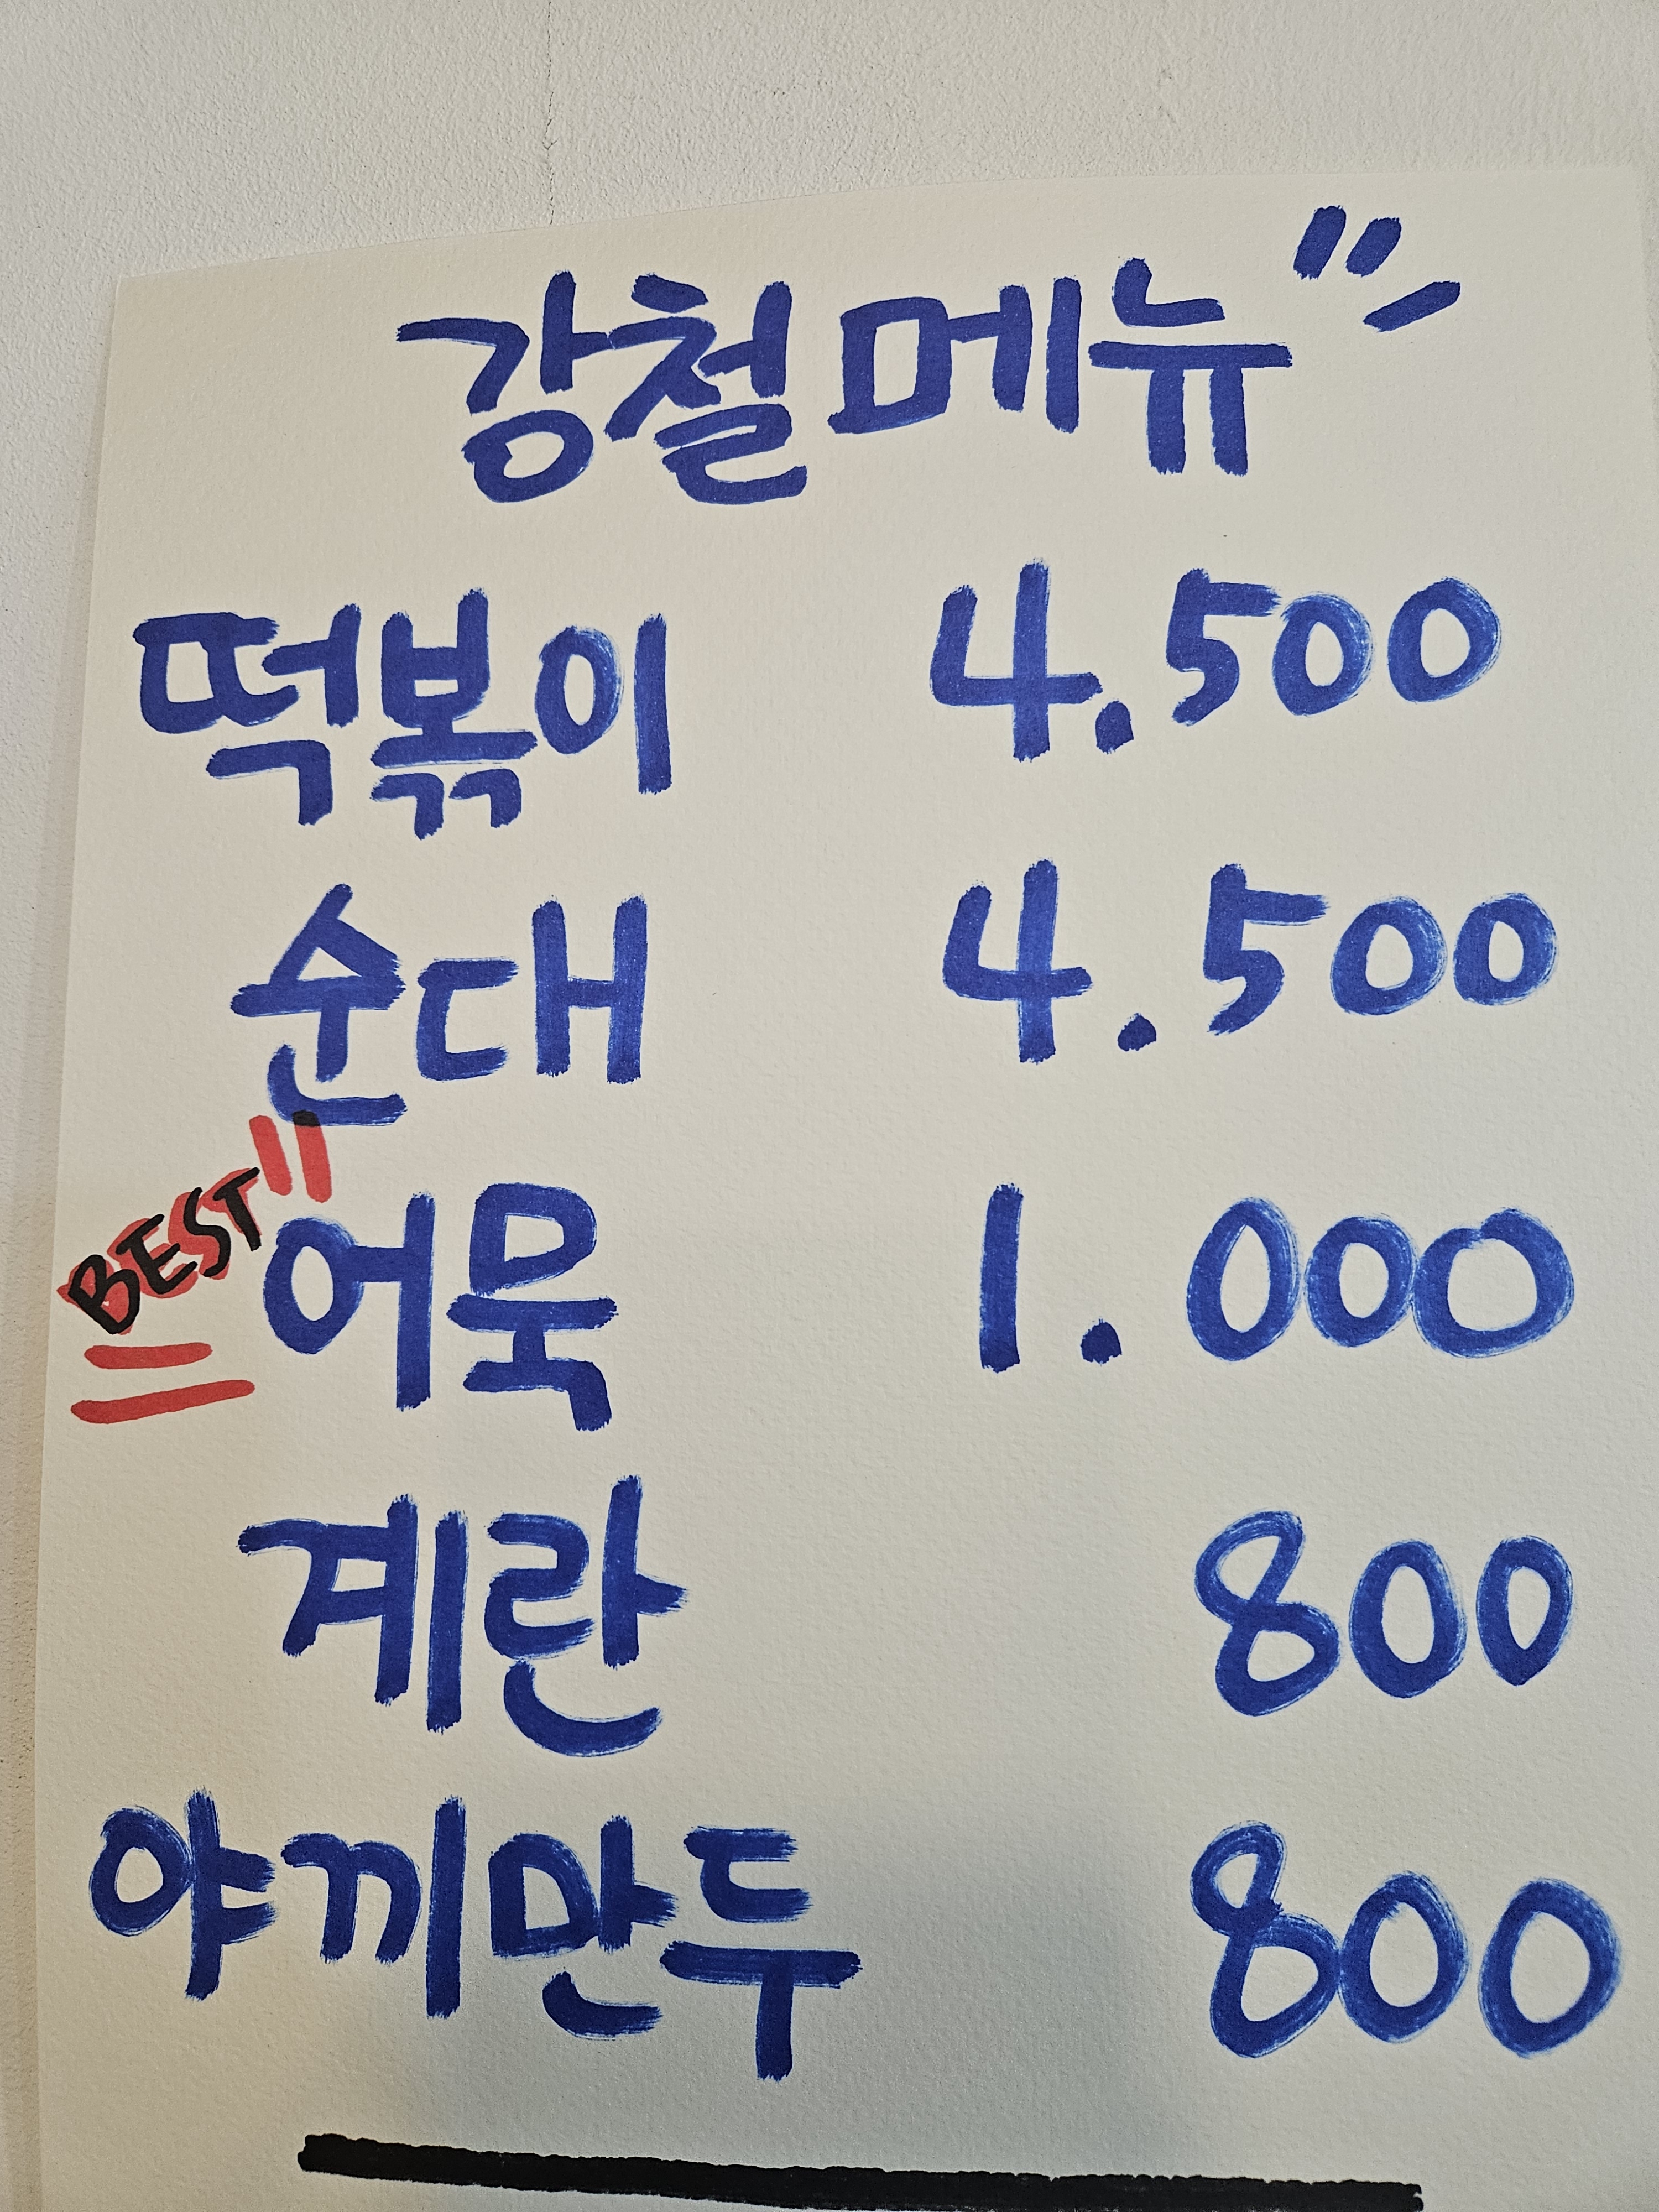 강철메뉴
떡볶이 4.500
순대 4.500
BEST
어묵 1.000
계란 800
야끼만두 800